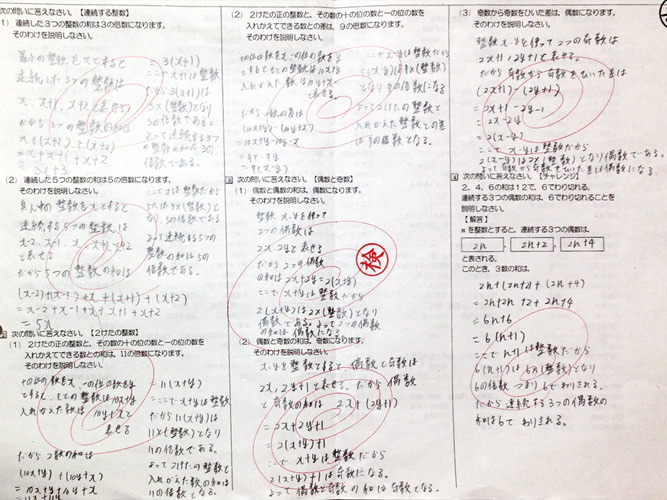 次の問いに答えなさい。【連続する整数】
(1) 連続した3つの整数の和は3の倍数になります。
そのわけを説明しなさい。
最小の整数をxとすると
連続した3つの整数は
x、x+1、x+2と表せる
だから3つの整数の和は
x+(x+1)+(x+2)
=x+x+1+x+2
=3x+3
=3(x+1)
ここでx+1は整数
だから3(x+1)は
3×(整数)となり
3の倍数である。
よって連続する3つ
の整数の和は3の
倍数である。
(2) 連続した5つの整数の和は5の倍数になります。
そのわけを説明しなさい。
真ん中の整数をxとすると
連続する5つの整数は
x-2、x-1、x、x+1、x+2
と表せる
だから5つの整数の和は
(x-2)+(x-1)+x+(x+1)+(x+2)
=5x
ここでxは整数だから
5xは5×(整数)とな
り、5の倍数である
よって連続する5つの
整数の和は5の
倍数である。
2 次の問いに答えなさい。【2けたの整数】
(1) 2けたの正の整数と、その数の十の位の数と一の位の数を
入れかえてできる数との和は、11の倍数になります。
そのわけを説明しなさい。
十の位の数をx、一の位の数をy
とすると、もとの整数は10x+y
入れかえた数は10y+xと
表せる
だから2数の和は
(10x+y)+(10y+x)
=10x+y+10y+x
=11x+11y
=11(x+y)
ここでx+yは整数
だから11(x+y)は
11×(整数)となり
11の倍数である。
よって2けたの整数と
入れかえた数の和は
11の倍数となる。
(2) 2けたの正の整数と、その数の十の位の数と一の位の数を
入れかえてできる数との差は、9の倍数になります。
そのわけを説明しなさい。
十の位の数をx、一の位の数をyと
するともとの整数は10x+y
入れかえた数は10y+xと
表せる
だから2数の差は
(10x+y)-(10y+x)
=10x+y-10y-x
=9x-9y
=9(x-y)
ここでx-yは整数だから
9(x-y)は9×(整数)と
なり9の倍数になる
よって2けたの整数と
入れかえた整数との差
は9の倍数となる。
3 次の問いに答えなさい。【偶数と奇数】
(1) 偶数と偶数の和は、偶数になります。
そのわけを説明しなさい。
整数x、yを使って
2つの偶数は
2x、2yと表せる
だから2つの偶数
の和は2x+2y=2(x+y)
ここでx+yは整数だから
2(x+y)は2×(整数)となり
偶数である。よって2つの偶数
の和は偶数になる
検
(2) 偶数と奇数の和は、奇数になります。
そのわけを説明しなさい。
x、yを整数とすると偶数と奇数は
2x、2y+1と表せる。だから偶数
と奇数の和は2x+(2y+1)
=2x+2y+1
=2(x+y)+1
ここでx+yは整数だから
2(x+y)+1は奇数になる。
よって偶数と奇数の和は奇数となる。
(3) 奇数から奇数をひいた差は、偶数になります。
そのわけを説明しなさい。
整数x、yを使って2つの奇数は
2x+1、2y+1と表せる。
だから奇数から奇数をひいた差は
(2x+1)-(2y+1)
=2x+1-2y-1
=2x-2y
=2(x-y)
ここでx-yは整数だから
2(x-y)は2×(整数)となり偶数である。
よって奇数から奇数をひいた差は偶数になる。
4 次の問いに答えなさい。【チャレンジ】
2、4、6の和は12で、6でわり切れる。
連続する3つの偶数の和は、6でわり切れることを
説明しなさい。
【解答】
nを整数とすると、連続する3つの偶数は、
2n、2n+2、2n+4
と表される。
このとき、3数の和は、
2n+(2n+2)+(2n+4)
=2n+2n+2+2n+4
=6n+6
=6(n+1)
ここでn+1は整数だから
6(n+1)は6×(整数)となり
6の倍数つまり6でわりきれる。
だから連続する3つの偶数の
和は6でわりきれる。